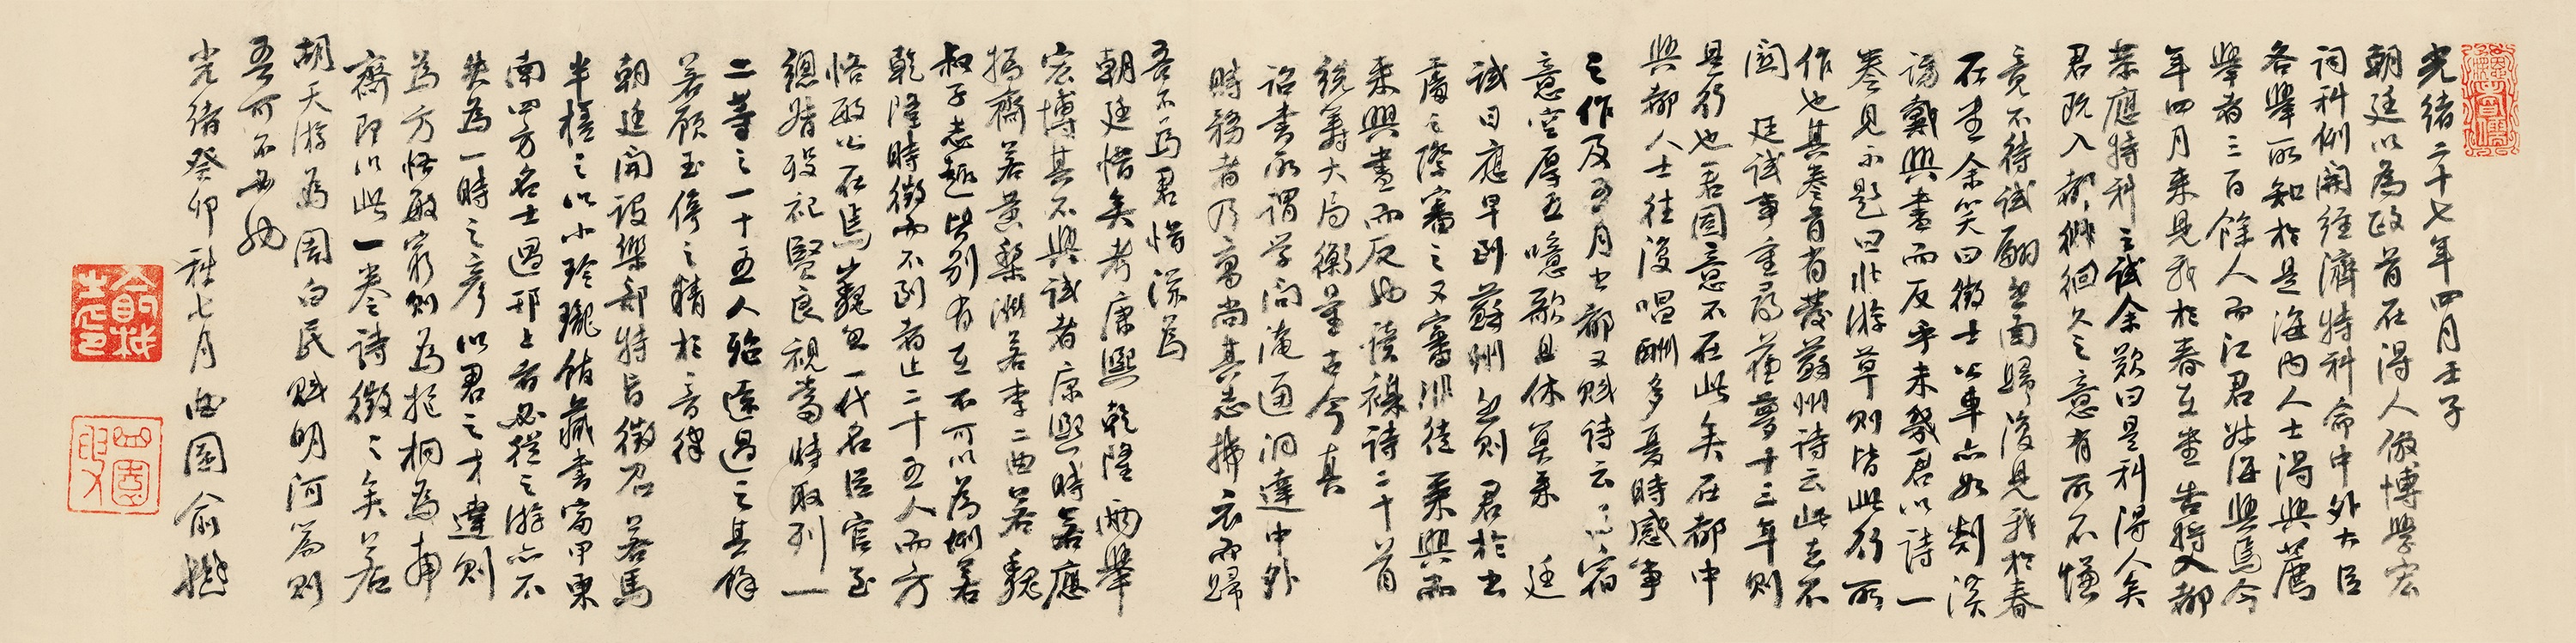 光緒二十七年四月壬子
朝廷以為政首在得人倣博學宏
詞科例開經濟特科命中外大臣
各舉所知於是海內人士得與薦
舉者三百餘人而江君妹海與焉今
年四月來見我於春在堂告將入都
業應特科之試余歎曰是科得人矣
君既入都徘徊久之意有所不慊
竟不待試翩然南歸復見我於春
在堂余笑曰徵士公車亦如剡溪
訪戴興盡而反乎未幾君以詩一
卷見示題曰北游草則皆此行所
作也其卷首有發蘇州詩云此去不
因 廷試事重尋舊夢十三年則
是行也君固意不在此矣在都中
與都人士往復唱酬多憂時感事
之作及五月出都又賦詩云
意空厚五噫歌且休莫乘 廷
試日應早到蘇州然則君於出
處之際審之又審非徒乘興而
來興盡而反也讀襍詩二十首
統籌大局衡量古今真
詔書所謂學問淹通洞達中外
時務者乃高尚其志拂衣而歸
吾不為君惜深為
朝廷惜矣考康熙乾隆兩舉
宏博其不與試者康熙時若應
撝齋若黃梨洲若李二曲若魏
叔子志趣皆別有在不可以為例若
乾隆時徵而不到者止二十五人而方
恪敏公在焉巍然一代名臣官至
總督歿祀賢良視當時取列一
二等之一十五人殆遠過之其餘
若顧玉停之精於音律
朝廷開設樂部特旨徵召若馬
半槎之以小玲瓏館藏書富甲東
南四方名士過邗上者必從之游亦不
失為一時之彥以君之才達則
為方恪敏窮則為抱桐為甫
齋即以此一卷詩徵之矣若
胡天游為周白民賦明河篇則
吾可不必也
光緒癸卯秋七月曲園俞樾